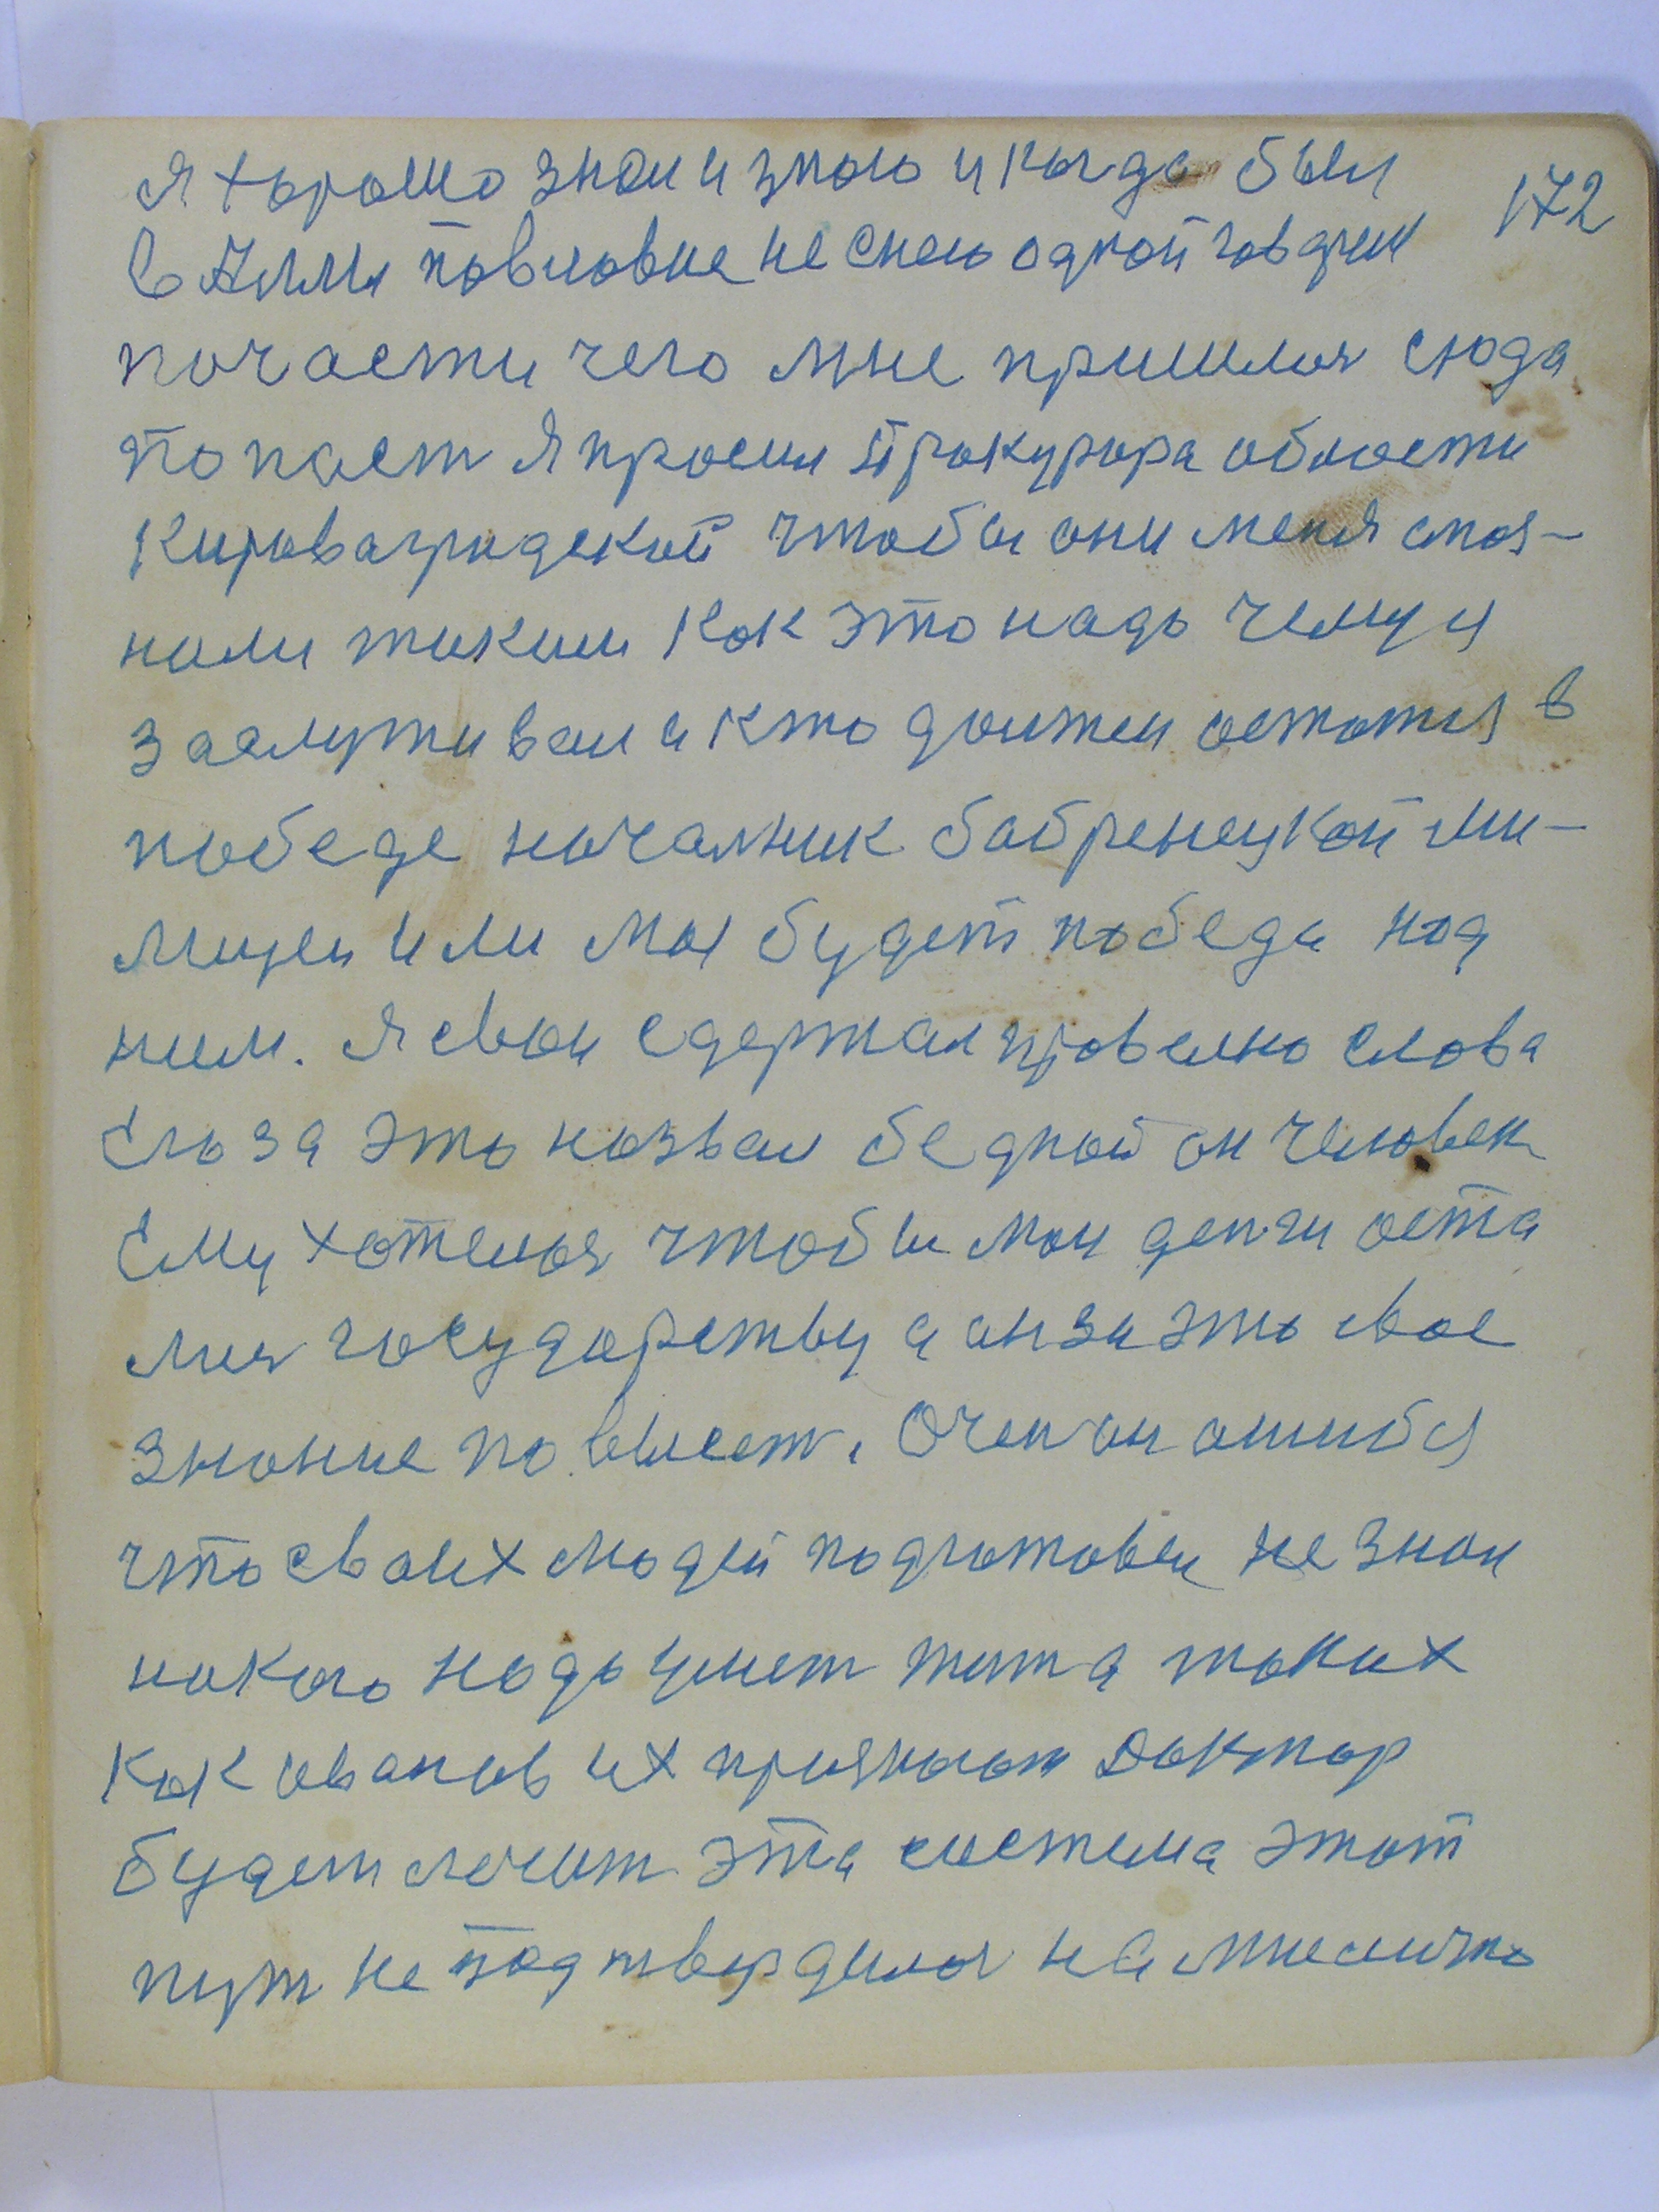 Я хорошо знаи и знаю и когда был 172
В Алли повловне не снею одной говдри
почасти чего мне пришлся сюда
попаст Я просил Прокурора области
Кировагродской чтобы они меня споз-
нали таким Как это надо чему я
заслуживаи и кто должен остатся в
победе началник бобренецкой ми-
лиции или моя будет победа над
ним. Я свои сдержал провелно слова
Его за это назвал бедной он человек
Ему хотелося чтобы мои денги оста
лися государству а он за это свое
знание повысет. Очен он ошибся
что своих людей подготовел не знаи
накого надо умет жит а таких
как иванов их признают Доктор
будет лечит эта система этот
пут не подтвердился на мне лично